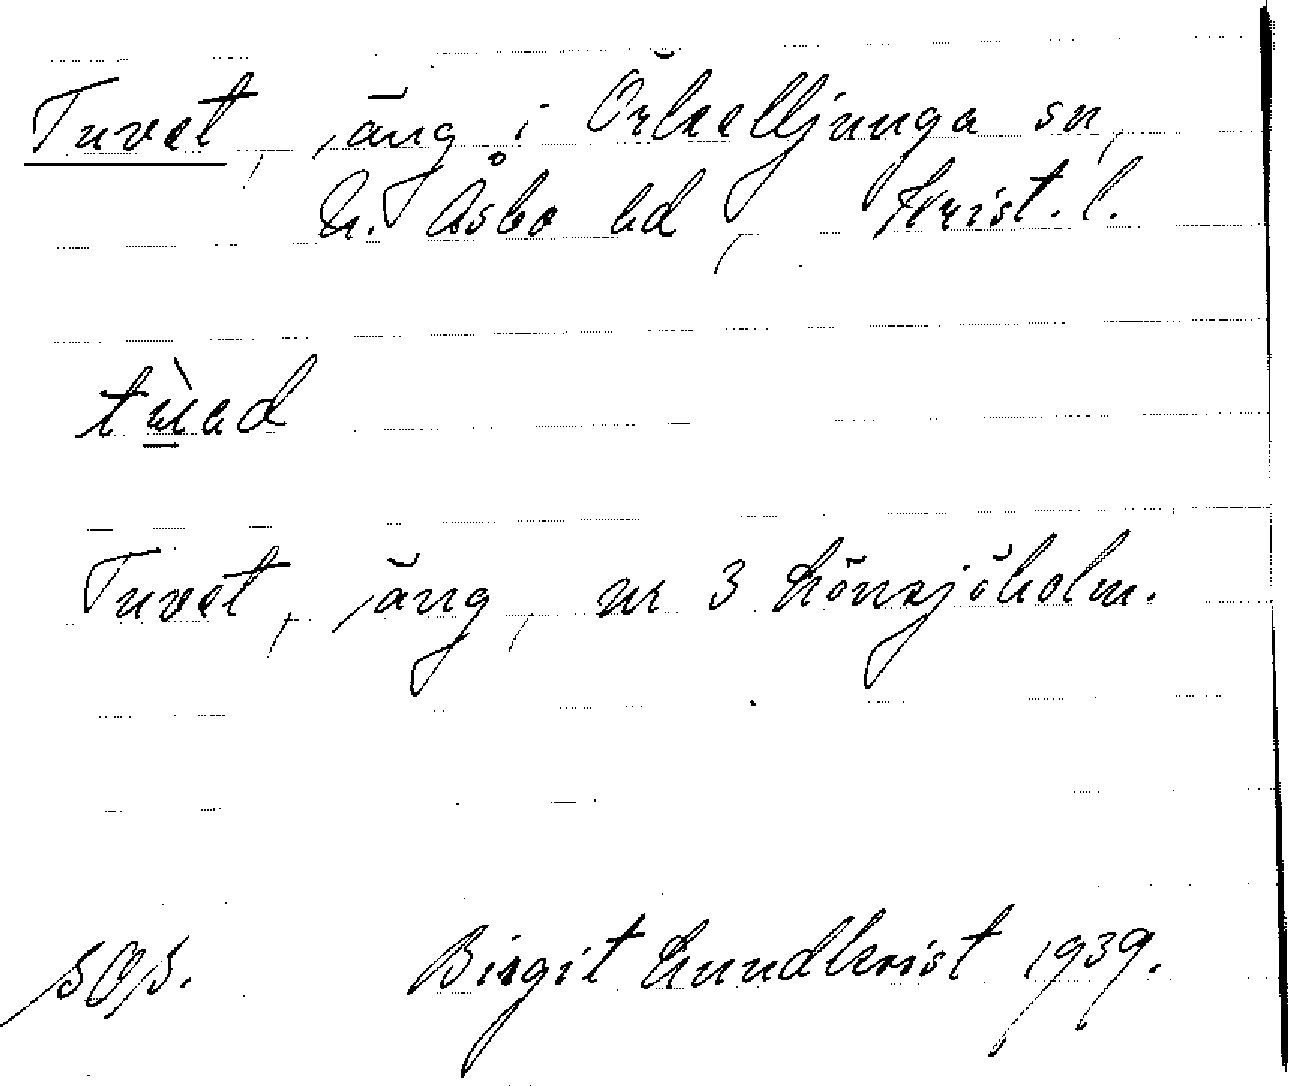 Tuvet, äng i Örkelljunga sn,
N. Åsbo hd, Krist. l.
Tuvet, äng, nr 3 Lönnsjöholm.
SOS. Birgit Lundkvist 1939.